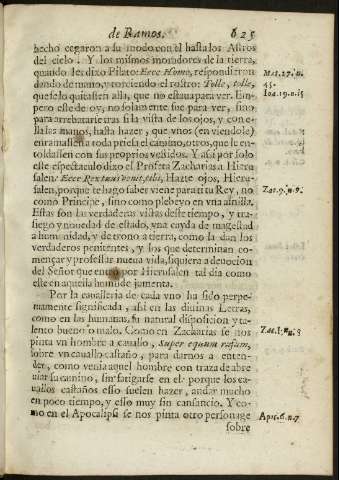 de Ramos. 625
hecho cegaron a su modo con èl hasta los Astros
del cielo. Y los mismos moradores de la tierra,
quando les dixo Pilato: Ecce Homo, respondieron
dando de mano, y torciendo el rostro: Tolle, tolle,
que se lo quitassen allà, que no estaua para ver. Em-
pero este de oy, no solamente fue para ver, sino
para arrebatarse tras si la vista de los ojos, y con e-
lla las manos, hasta hazer, que vnos (en viendole)
enramassen a toda priesa el camino, otros, que le en-
toldassen con sus proprios vestidos. Y assi por solo
este espectaculo dixo el Profeta Zacharias a Hieru-
salen: Ecce Rex tuus venit, tibi, Hazte ojos, Hieru-
salen, porque te hago saber viene para ti tu Rey, no
como Principe, sino como plebeyo en vna asnilla.
Estas son las verdaderas vistas deste tiempo, y tra-
siego y nouedad de estado, vna cayda de magestad
a humanidad, y de trono a tierra, como la dan los
verdaderos penitentes, y los que determinan co-
mençar y professar nueua vida, siquiera a deuocion
del Señor que entrò por Hierusalen tal dia como
este en aquella humilde jumenta.
Por la caualleria de cada vno ha sido perpe-
mamente significada, assi en las diuinas Letras,
como en las humanas, su natural disposicion y ta-
lento bueno o malo. Como en Zacharias se nos
pinta vn hombre a cauallo, Super equum rufum,
sobre vn cauallo castaño, para darnos a enten-
der, como venia aquel hombre con traza de abre
uiar su camino, sin fatigarse en el: porque los ca-
uallos castaños esso suelen hazer, andar mucho
en poco tiempo, y esso muy sin cansancio. Y co-
mo en el Apocalipsi se nos pinta otro personage
sobre
Mat.27.n.
45.
Ioa.19.n.15
Zac.9.n.9.
Zac.1.n.8
Apoc.6.n.7